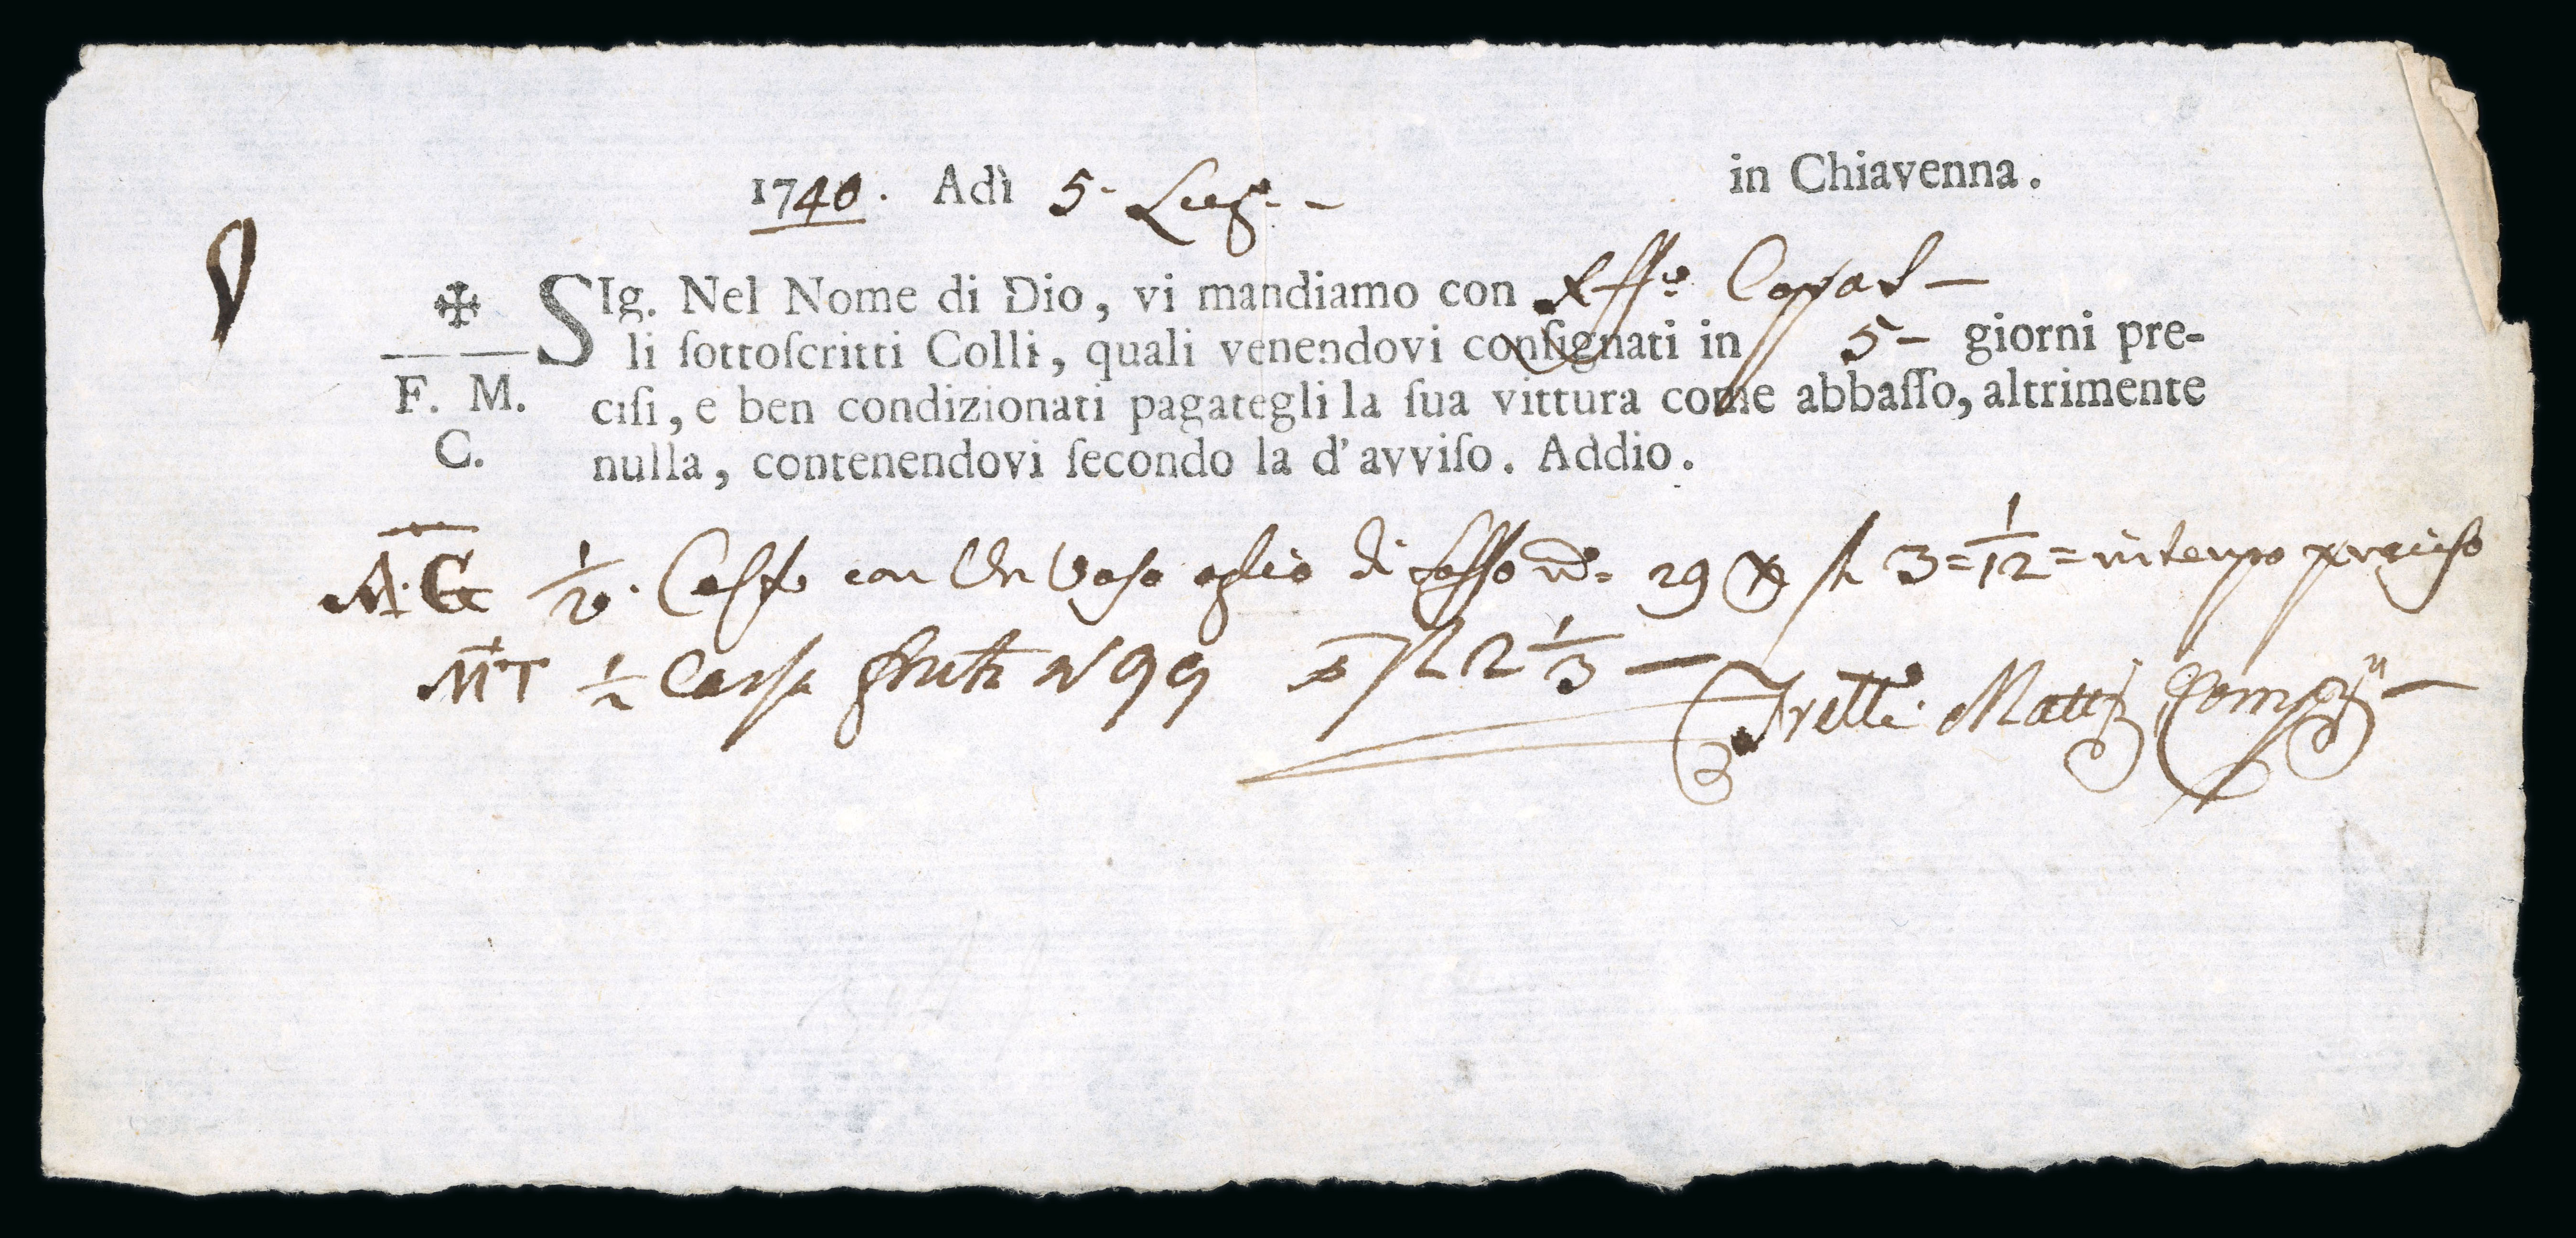 1740. Adì 5. Lug.
in Chiavenna.
✠ SIg. Nel Nome di Dio, vi mandiamo con
li ſottoſcritti Colli, quali venendovi conſignati in 5 - giorni pre-
F. M. ciſi, e ben condizionati pagategli la ſua vittura come abbaſſo, altrimente
C. nulla, contenendovi ſecondo la d'avviſo. Addio.
A. G. 1/2. con Un Vaso oglio di Sasso 29 3 = 1/12 = in tempo preciso
MT 1/2 Cassa frutti N 99 2 1/3 -
Frelli. Mattj Comp.